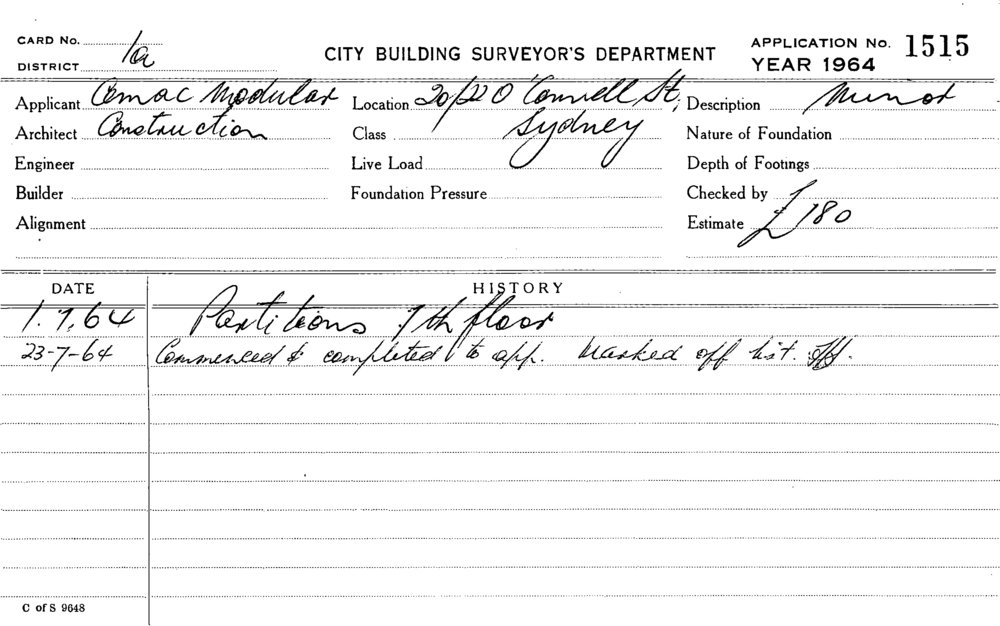 CARD No. 1a
CITY BUILDING SURVEYOR'S DEPARTMENT
APPLICATION No. 1515
DISTRICT
YEAR 1964
Applicant Comac Modular Location 20/22 O'Connell St, Description Minor
Architect Construction Class Sydney Nature of Foundation
Engineer Live Load Depth of Footings
Builder Foundation Pressure Checked by
Alignment Estimate £180
DATE HISTORY
1.7.64 Partitions 7th floor
23-7-64 Commenced & completed to app. Marked off list.
C of S 9648